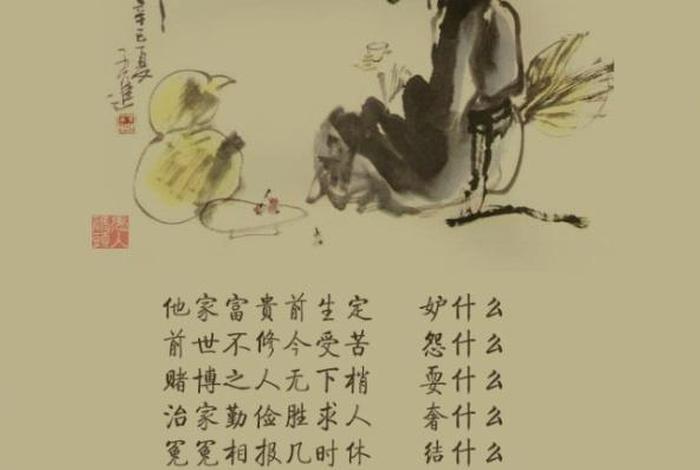 辛巳夏
他家富貴前生定 妒什么
前世不修今受苦 怨什么
赌博之人无下梢 耍什么
治家勤俭胜求人 奢什么
冤冤相报几时休 结什么